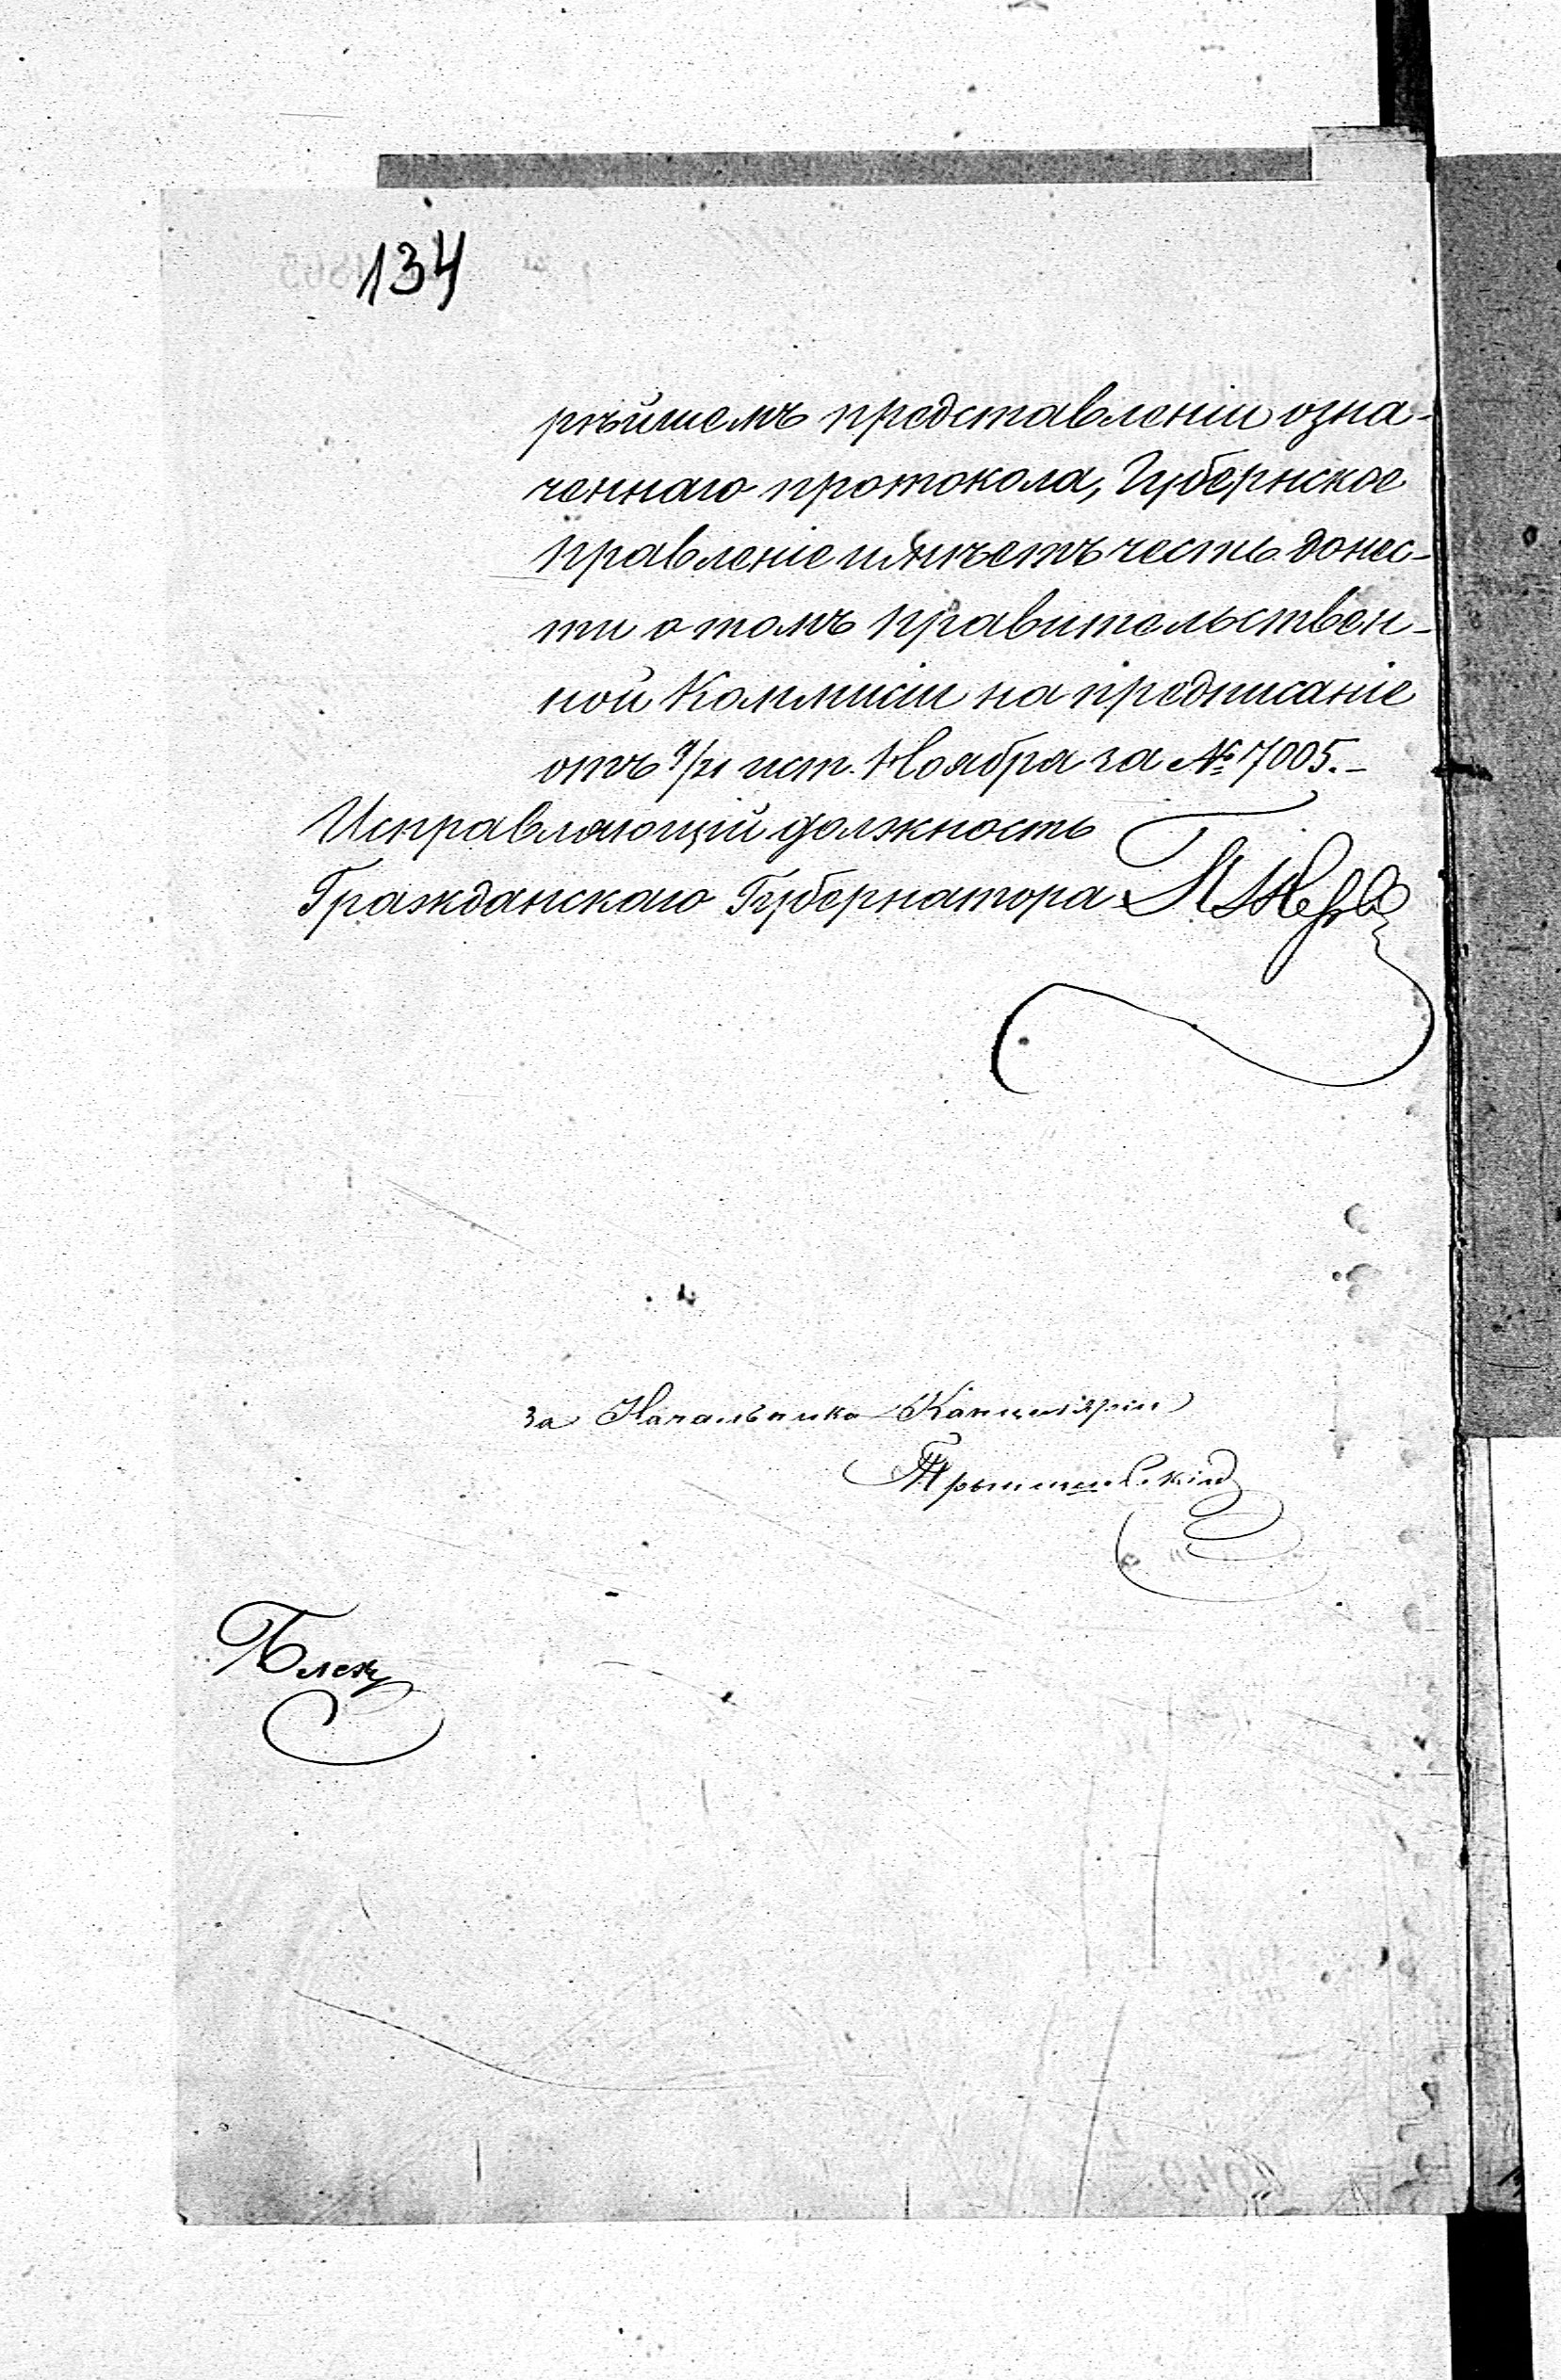 134
рѣйшемъ представленіи озна-
ченнаго протокола, Губернское
Правленіе имѣетъ честь донес-
ти о томъ Правительствен-
ной Коммисіи на предписаніе
отъ 9/21 ист. Ноября за № 7005.-
Исправляющій должность
Гражданскаго Губернатора
за Начальника Канцеляріи